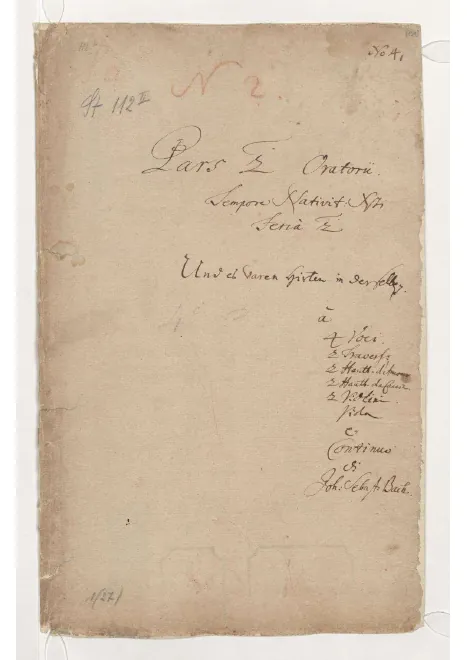 No 4,
N 2.
St 112 II
Pars 2 Oratorii.
Tempore Nativit Xsti
Feria 2
Und es waren Hirten in derselben
à
4 Voci.
2 Travers.
2 Hautb. d'Amour
2 Hautb. da Caccia
2 Violini
Viola
e
Continuo
di
Joh: Sebast: Bach.
1(27)